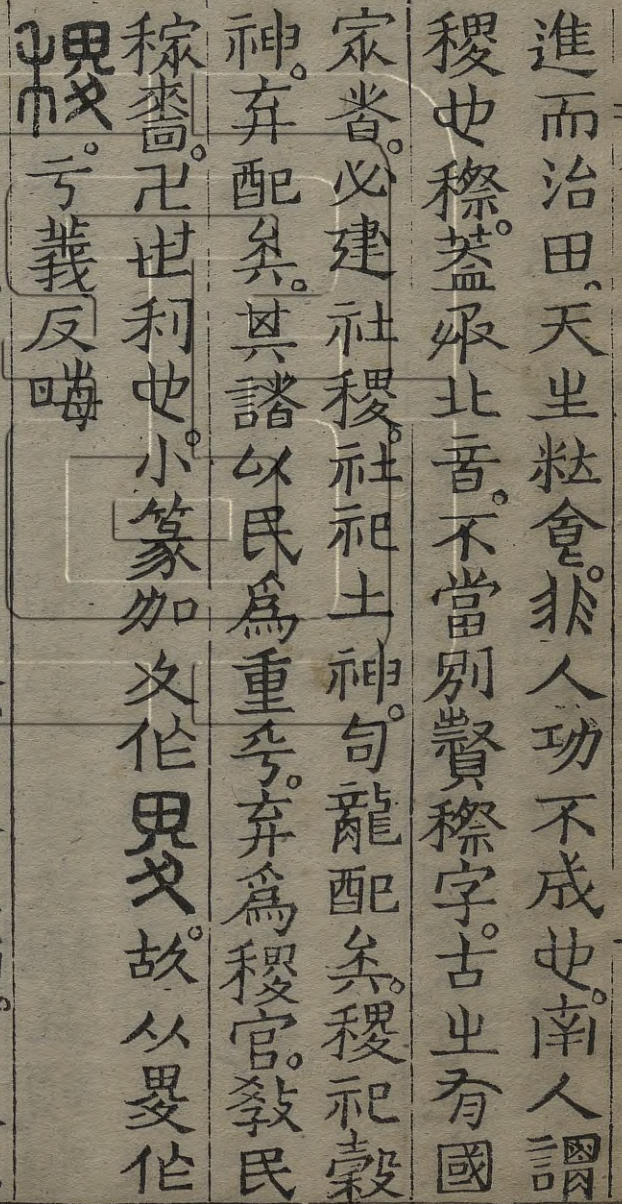 進而治田。天㞢粘食。非人功不成也。南人謂
稷也穄。蓋㪅北音。不當別贅穄字。古㞢有國
家者。必建社稷。社祀土神。句龍配矣。稷祀穀
神。弃配矣。其諧以民爲重乎。弃爲稷官。教民
稼嗇。卍世利也。小篆加夊作畟。故从畟作
稷。亏義反晦